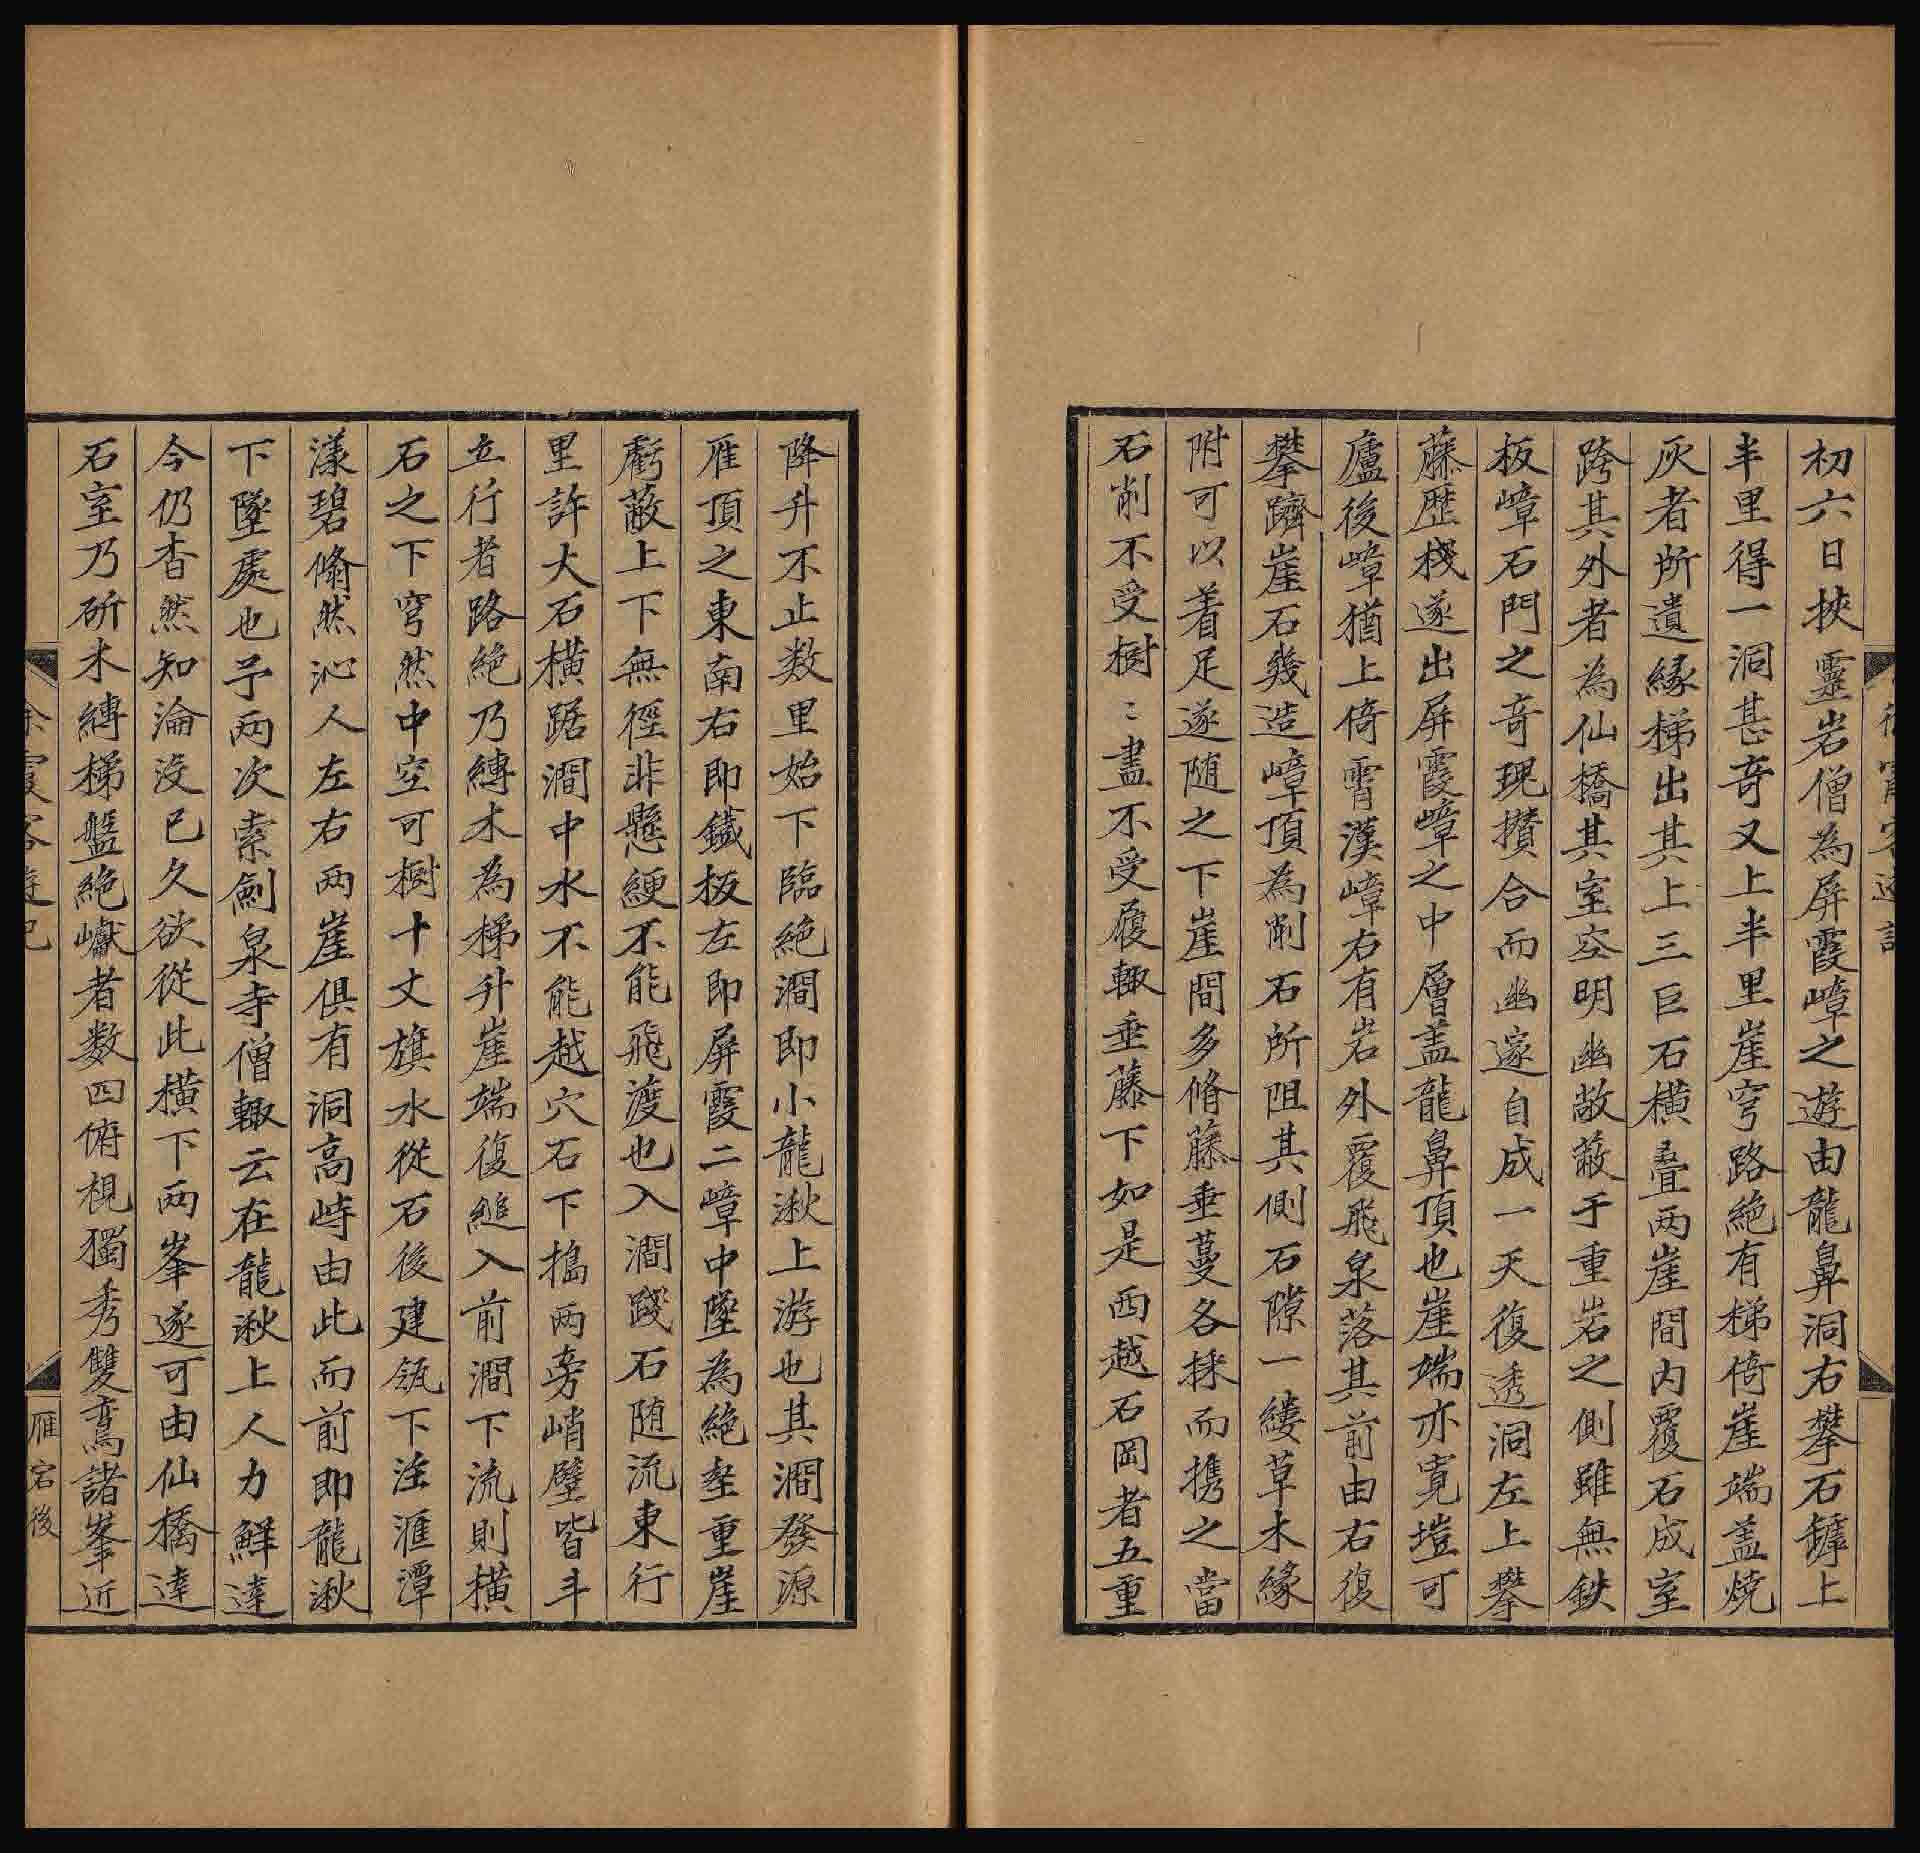 初六日挾靈岩僧為屏霞嶂之遊由龍鼻洞右攀石罅上
半里得一洞甚奇又上半里崖穹路絶有梯倚崖端盖燒
灰者所遺緣梯出其上三巨石橫疊两崖間内覆石成室
跨其外者為仙橋其室空明幽敞蔽于重岩之側雖無鉄
板嶂石門之奇瑰攅合而幽邃自成一天復透洞左上攀
藤歴棧遂出屏霞嶂之中層盖龍鼻頂也崖端亦寛塏可
廬後嶂猶上倚霄漢嶂右有岩外覆飛泉落其前由右復
攀躋崖石幾造嶂頂為削石所阻其側石隙一縷草木緣
附可以着足遂随之下崖間多脩藤垂蔓各採而携之當
石削不受樹〻盡不受履輙垂藤下如是西越石岡者五重
降升不止数里始下臨絶澗即小龍湫上游也其澗發源
雁頂之東南右即鐵板左即屏霞二嶂中墜為絶壑重崖
虧蔽上下無徑非懸綆不能飛渡也入澗踐石随流東行
里許大石橫踞澗中水不能越穴石下搗两旁峭壁皆斗
立行者路絶乃縛木為梯升崖端復縋入前澗下流則橫
石之下穹然中空可樹十丈旗水從石後建瓴下注滙潭
漾碧翛然沁人左右两崖俱有洞高峙由此而前即龍湫
下墜處也予两次索劍泉寺僧輙云在龍湫上人力鮮達
今仍杳然知淪没已久欲從此橫下两峯遂可由仙橋達
石室乃斫木縛梯盤絶巘者数四俯視獨秀雙鸞諸峯近
徐霞客遊記
雁宕後